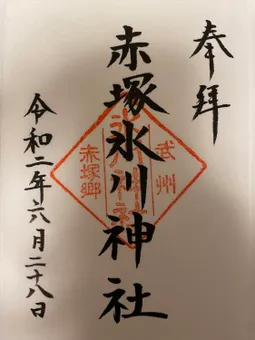 奉拝
赤塚氷川神社
武州
赤塚郷
令和二年六月二十八日